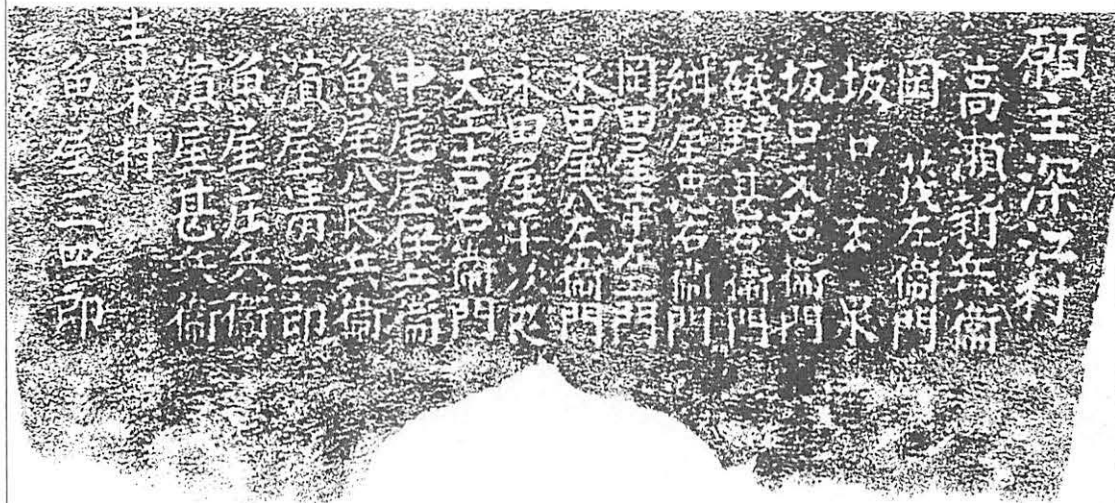 願主深江村
高瀬新兵衛
岡 茂左衛門
坂口
坂口又右衛門
礒野甚右衛門
屋忠右衛門
岡田屋門
永田屋八左衛門
永田屋平次郎
大工吉右衛門
中尾屋兵衛
魚屋八良兵衛
濵屋清三郎
魚屋庄兵衛
濵屋甚兵衛
青木村
魚屋三四郎